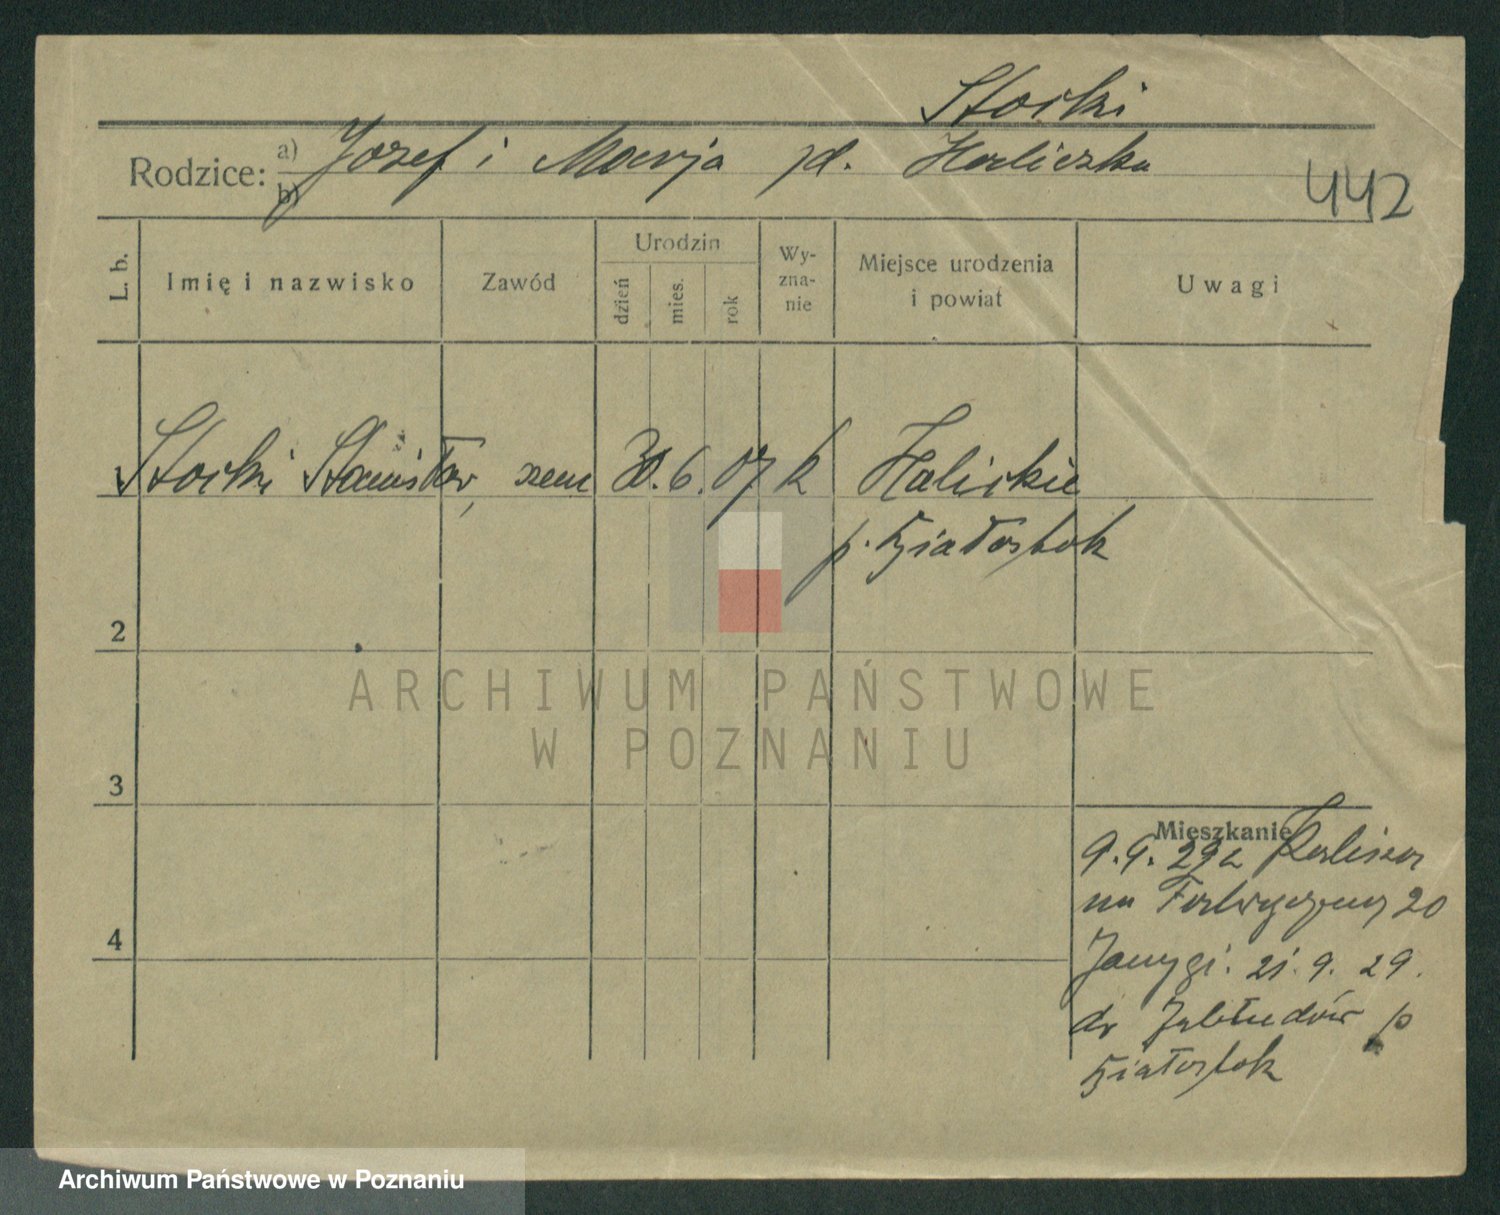 Stocki
Rodzice: a) Józef i Marja zd. Haliczka
b)
442
L. b.
Imię i nazwisko
Zawód
Urodzin
dzień
mies.
rok
Wy-
zna-
nie
Miejsce urodzenia
i powiat
Uwagi
Stocki Stanisław, 30. 6. 07 k Halickie
p. Białostok
2
3
4
Mieszkanie
9. 9. 29 z Kalisza
na Fabryczną 20
21. 9. 29.
do Zabłudów p
Białostok
ARCHIWUM PAŃSTWOWE
W POZNANIU
Archiwum Państwowe w Poznaniu